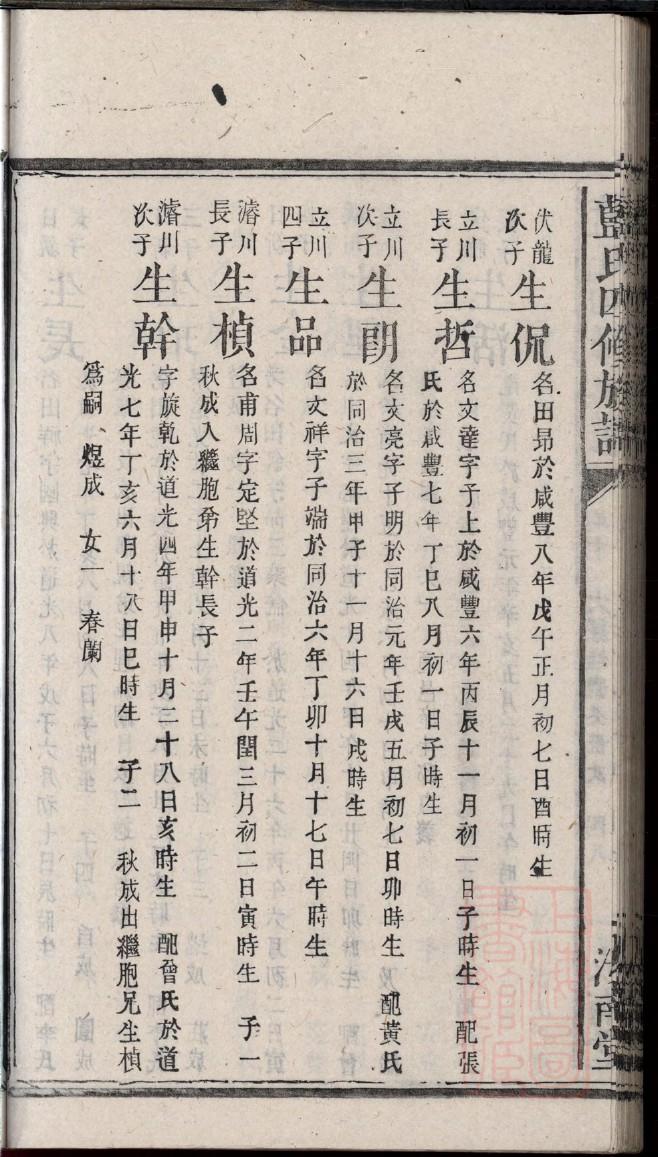 藍氏四修族譜
伏龍次子 生侃 名田昂於咸豐八年戊午正月初七日酉時生
立川長子 生哲 名文達字子上於咸豐六年丙辰十一月初一日子時生 配張
氏於咸豐七年丁巳八月初一日子時生
立川次子 生明 名文亮字子明於同治元年壬戌五月初七日卯時生 配黃氏
於同治三年甲子十一月十六日戌時生
立川四子 生品 名文祥字子端於同治六年丁卯十月十七日午時生
濬川長子 生楨 名甫周字定堅於道光二年壬午閏三月初二日寅時生 子一
秋成入繼胞弟生幹長子
濬川次子 生幹 字旋乾於道光四年甲申十月二十八日亥時生 配曾氏於道
光七年丁亥六月十八日巳時生 子二 秋成出繼胞兄生楨
爲嗣 煜成 女一 春蘭
汝南堂